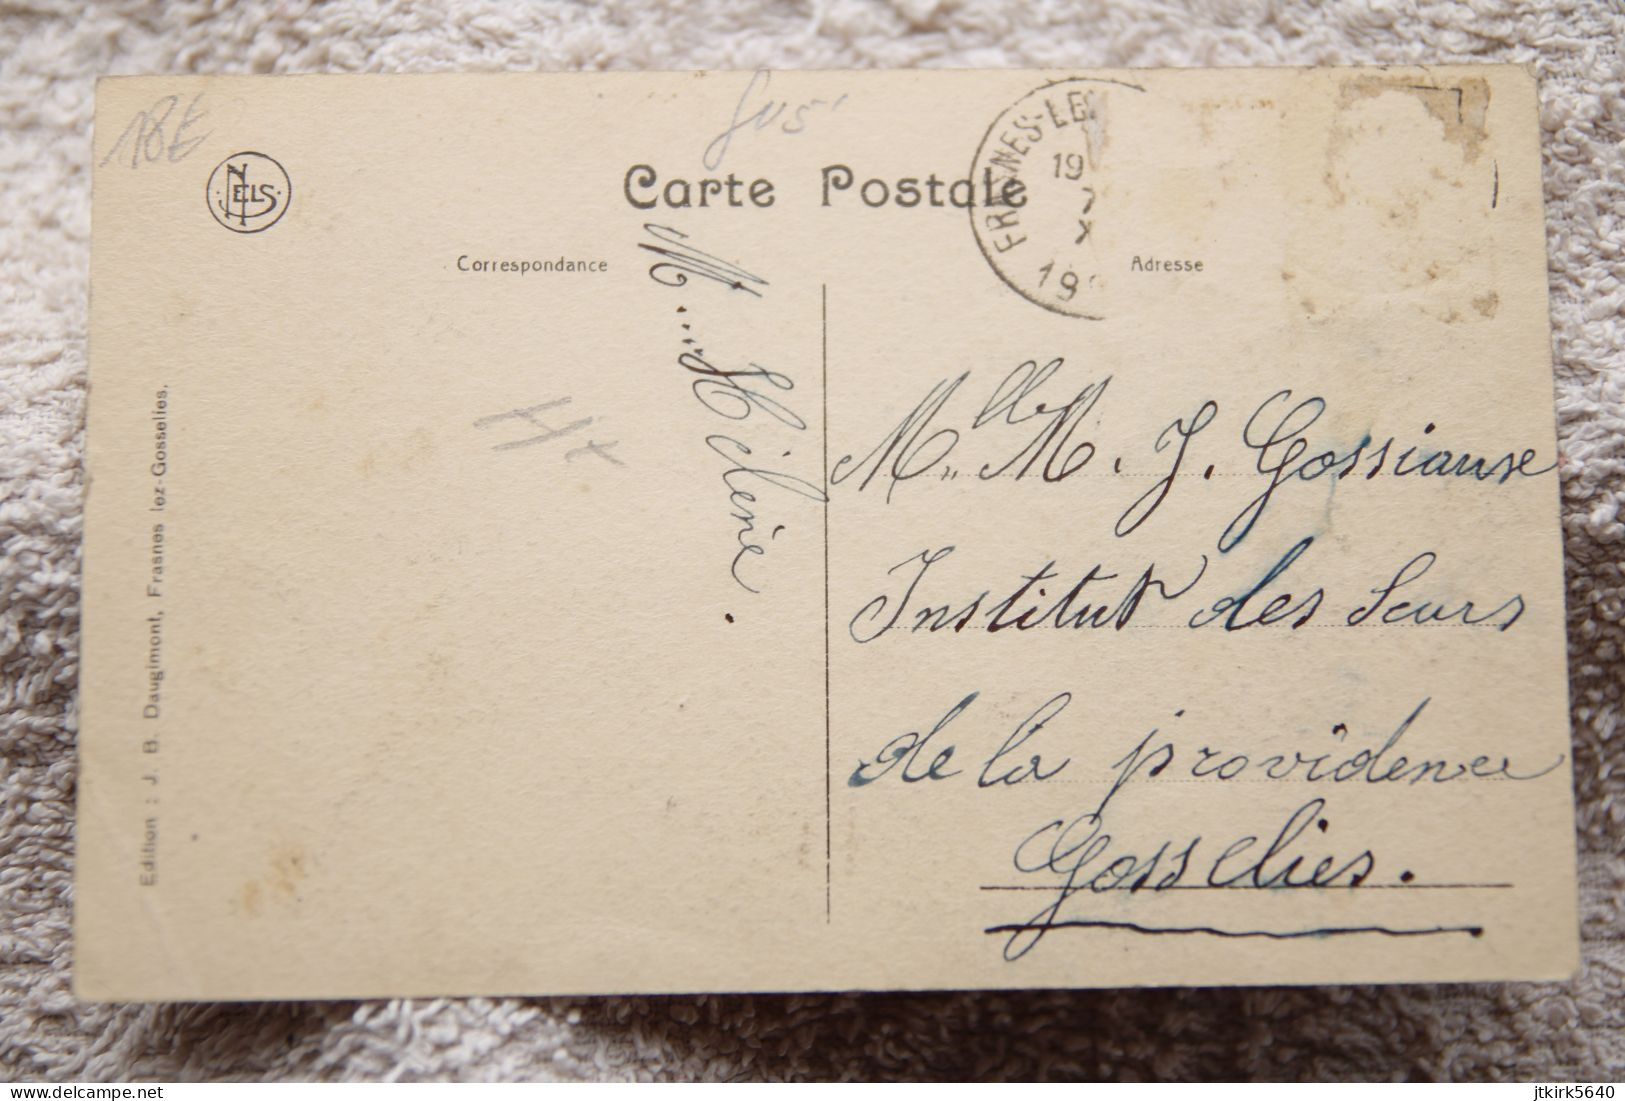 18€
NELS
Carte Postale
FRASNES-LE
19
7
X
19
Correspondance
Adresse
M... Hélène.
Mlle M. J. Gossiause
Institut des Sœurs
de la providence
Gosselies.
Edition : J. B. Daugimont, Frasnes lez-Gosselies.
delcampe.net
jtkirk5640